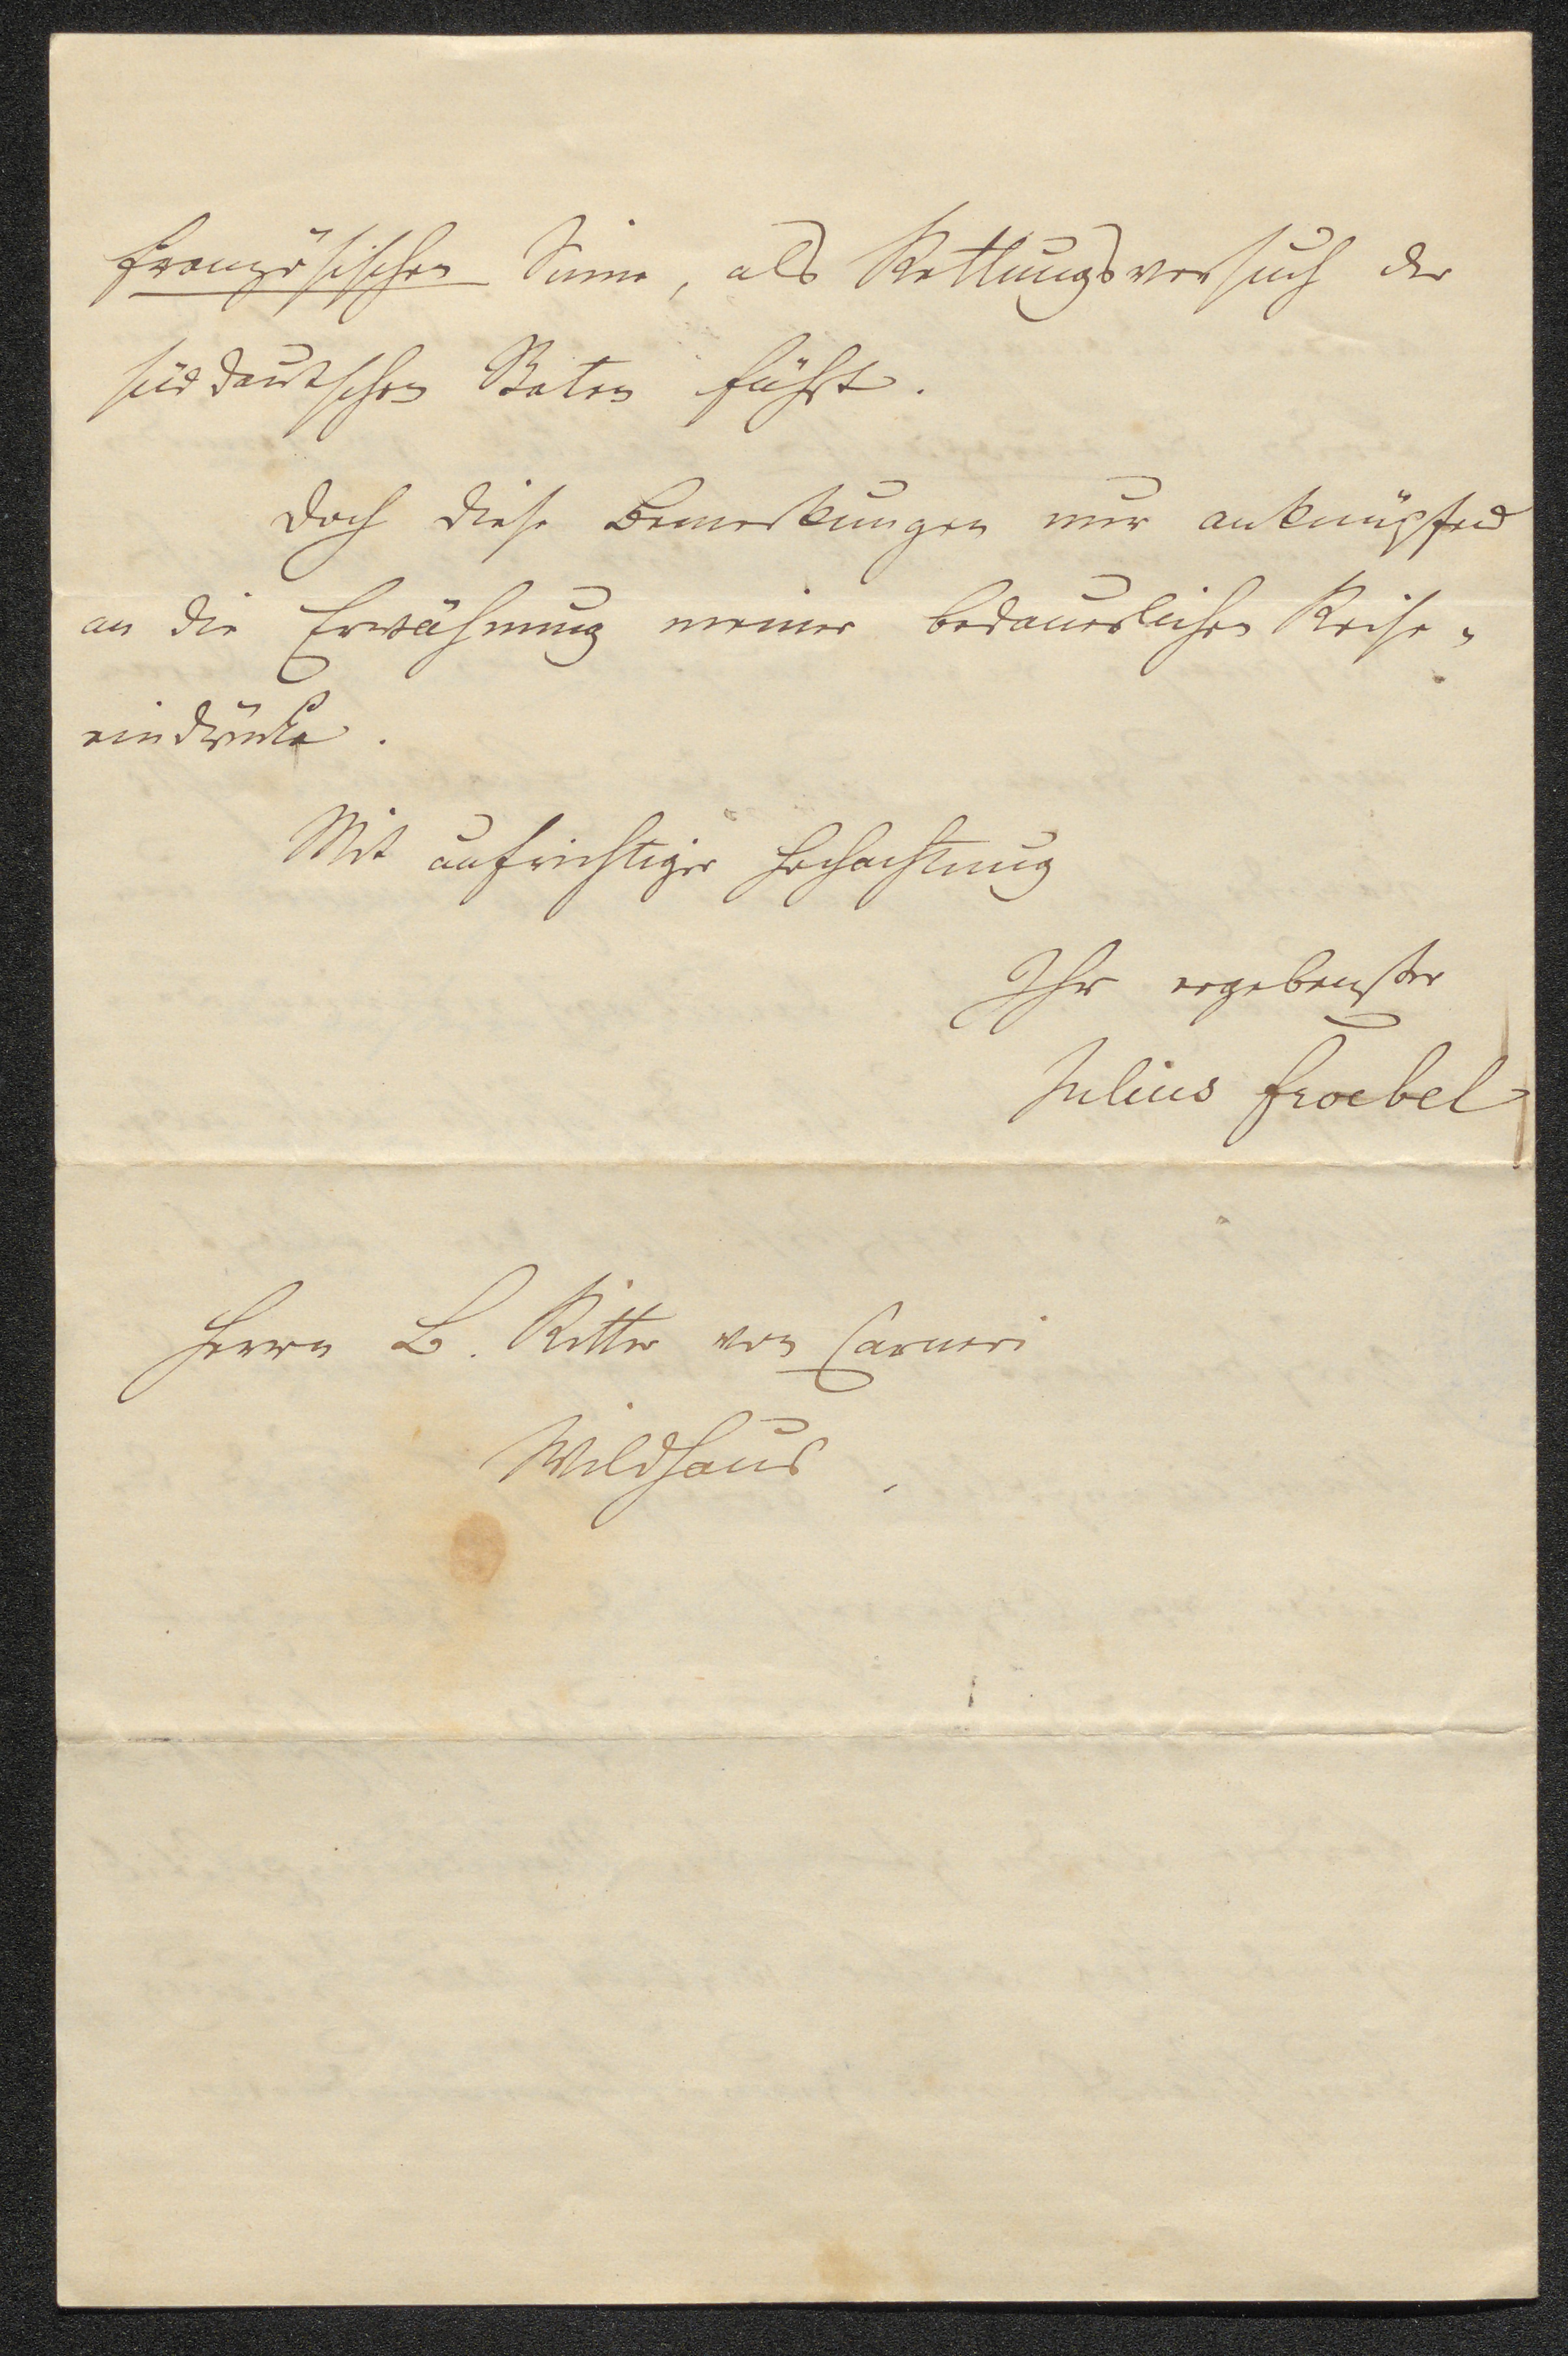 französischen Sinne, als Rettungsversuch der
süddeutschen Staten führt.
Doch diese Bemerkungen nur anknüpfend
an die Erwähnung meiner bedauerlichen Reise-
eindrücke.
Mit aufrichtiger Hochachtung
Ihr ergebenster
Julius Froebel
Herrn B. Ritter von Carneri
Wildhaus,